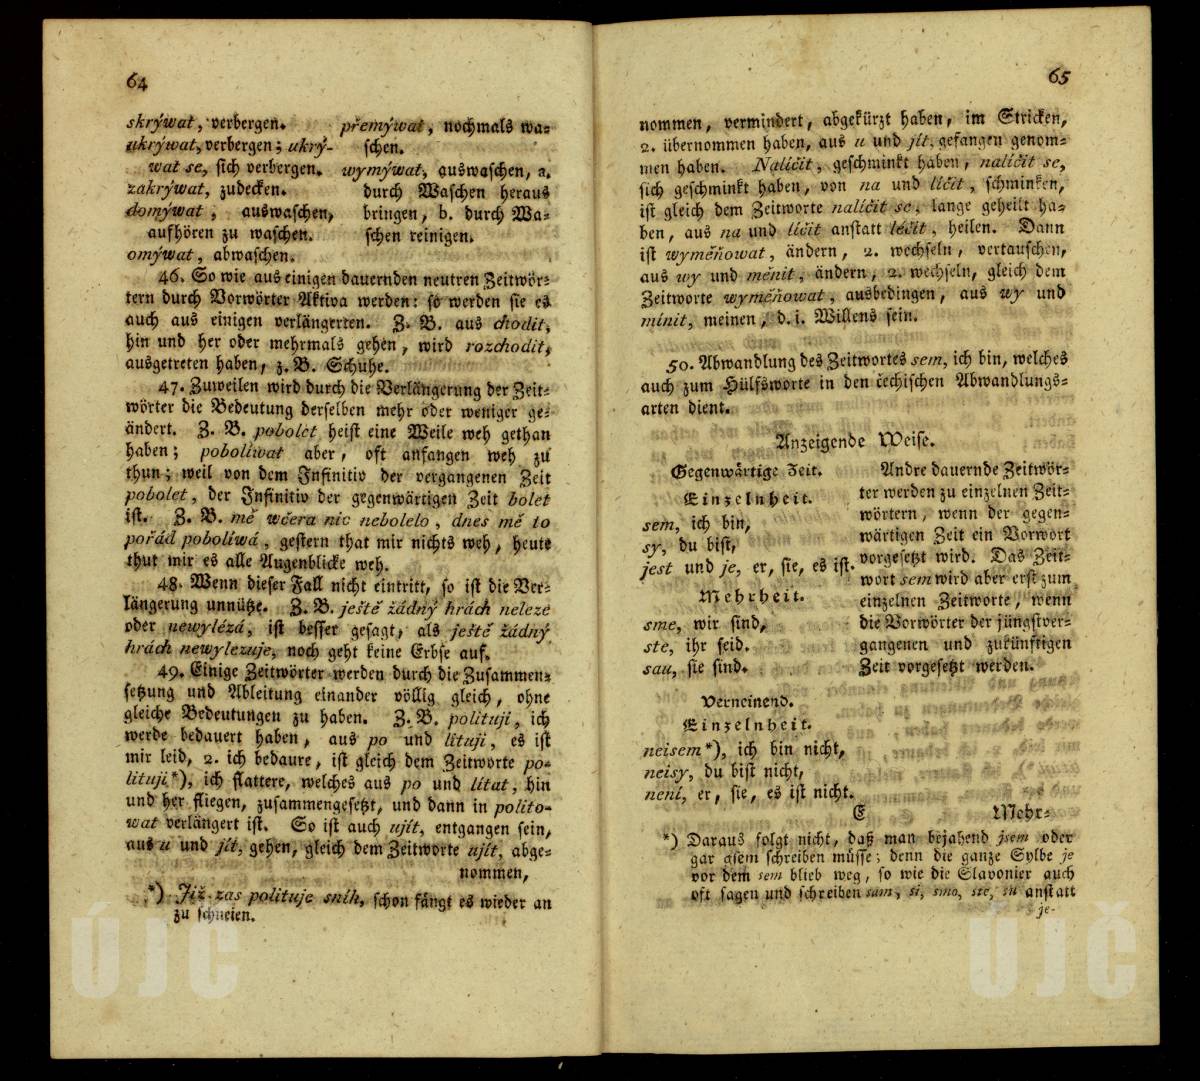 64
skrýwat, verbergen.
ukrýwat, verbergen; ukrý-
wat se, sich verbergen.
zakrýwat, zudecken.
domýwat, auswaschen,
aufhören zu waschen.
omýwat, abwaschen.
přemýwat, nochmals wa-
schen.
wymýwat, auswaschen, a.
durch Waschen heraus
bringen, b. durch Wa-
schen reinigen.
46. So wie aus einigen dauernden neutren Zeitwör-
tern durch Vorwörter Aktiva werden: so werden sie es
auch aus einigen verlängerten. Z. B. aus chodit,
hin und her oder mehrmals gehen, wird rozchodit,
ausgetreten haben, z. B. Schuhe.
47. Zuweilen wird durch die Verlängerung der Zeit-
wörter die Bedeutung derselben mehr oder weniger ge-
ändert. Z. B. pobolet heist eine Weile weh gethan
haben; poboliwat aber, oft anfangen weh zu
thun; weil von dem Infinitiv der vergangenen Zeit
pobolet, der Infinitiv der gegenwärtigen Zeit bolet
ist. Z. B. mě wčera nic nebolelo, dnes mě to
pořád poboliwá, gestern that mir nichts weh, heute
thut mir es alle Augenblicke weh.
48. Wenn dieser Fall nicht eintritt, so ist die Ver-
längerung unnütze. Z. B. ještě žádný hrách neleze
oder newylézá, ist besser gesagt, als ještě žádný
hrách newylezuje, noch geht keine Erbse auf.
49. Einige Zeitwörter werden durch die Zusammen-
setzung und Ableitung einander völlig gleich, ohne
gleiche Bedeutungen zu haben. Z. B. polituji, ich
werde bedauert haben, aus po und lituji, es ist
mir leid, 2. ich bedaure, ist gleich dem Zeitworte po-
lituji*), ich flattere, welches aus po und lítat, hin
und her fliegen, zusammengesetzt, und dann in polito-
wat verlängert ist. So ist auch ujít, entgangen sein,
aus u und jít, gehen, gleich dem Zeitworte ujít, abge-
nommen,
*) Již zas polituje sníh, schon fängt es wieder an
zu schneien.
65
nommen, vermindert, abgekürzt haben, im Stricken,
2. übernommen haben, aus u und jít, gefangen genom-
men haben. Nalíčit, geschminkt haben, nalíčit se,
sich geschminkt haben, von na und líčit, schminken,
ist gleich dem Zeitworte nalíčit se, lange geheilt ha-
ben, aus na und líčit anstatt léčit, heilen. Dann
ist wyměňowat, ändern, 2. wechseln, vertauschen,
aus wy und měnit, ändern, 2. wechseln, gleich dem
Zeitworte wyměňowat, ausbedingen, aus wy und
mínit, meinen, d. i. Willens sein.
50. Abwandlung des Zeitwortes sem, ich bin, welches
auch zum Hülfsworte in den čechischen Abwandlungs-
arten dient.
Anzeigende Weise.
Gegenwärtige Zeit.
Einzelnheit.
sem, ich bin,
sy, du bist,
jest und je, er, sie, es ist.
Mehrheit.
sme, wir sind,
ste, ihr seid.
sau, sie sind.
Andre dauernde Zeitwör-
ter werden zu einzelnen Zeit-
wörtern, wenn der gegen-
wärtigen Zeit ein Vorwort
vorgesetzt wird. Das Zeit-
wort sem wird aber erst zum
einzelnen Zeitworte, wenn
die Vorwörter der jüngstver-
gangenen und zukünftigen
Zeit vorgesetzt werden.
Verneinend.
Einzelnheit.
neisem*), ich bin nicht,
neisy, du bist nicht,
není, er, sie, es ist nicht.
E Mehr-
*) Daraus folgt nicht, daß man bejahend jsem oder
gar gsem schreiben müsse; denn die ganze Sylbe je
vor dem sem blieb weg, so wie die Slavonier auch
oft sagen und schreiben sam, si, smo, ste, su anstatt
je-
ÚJČ
ÚJČ